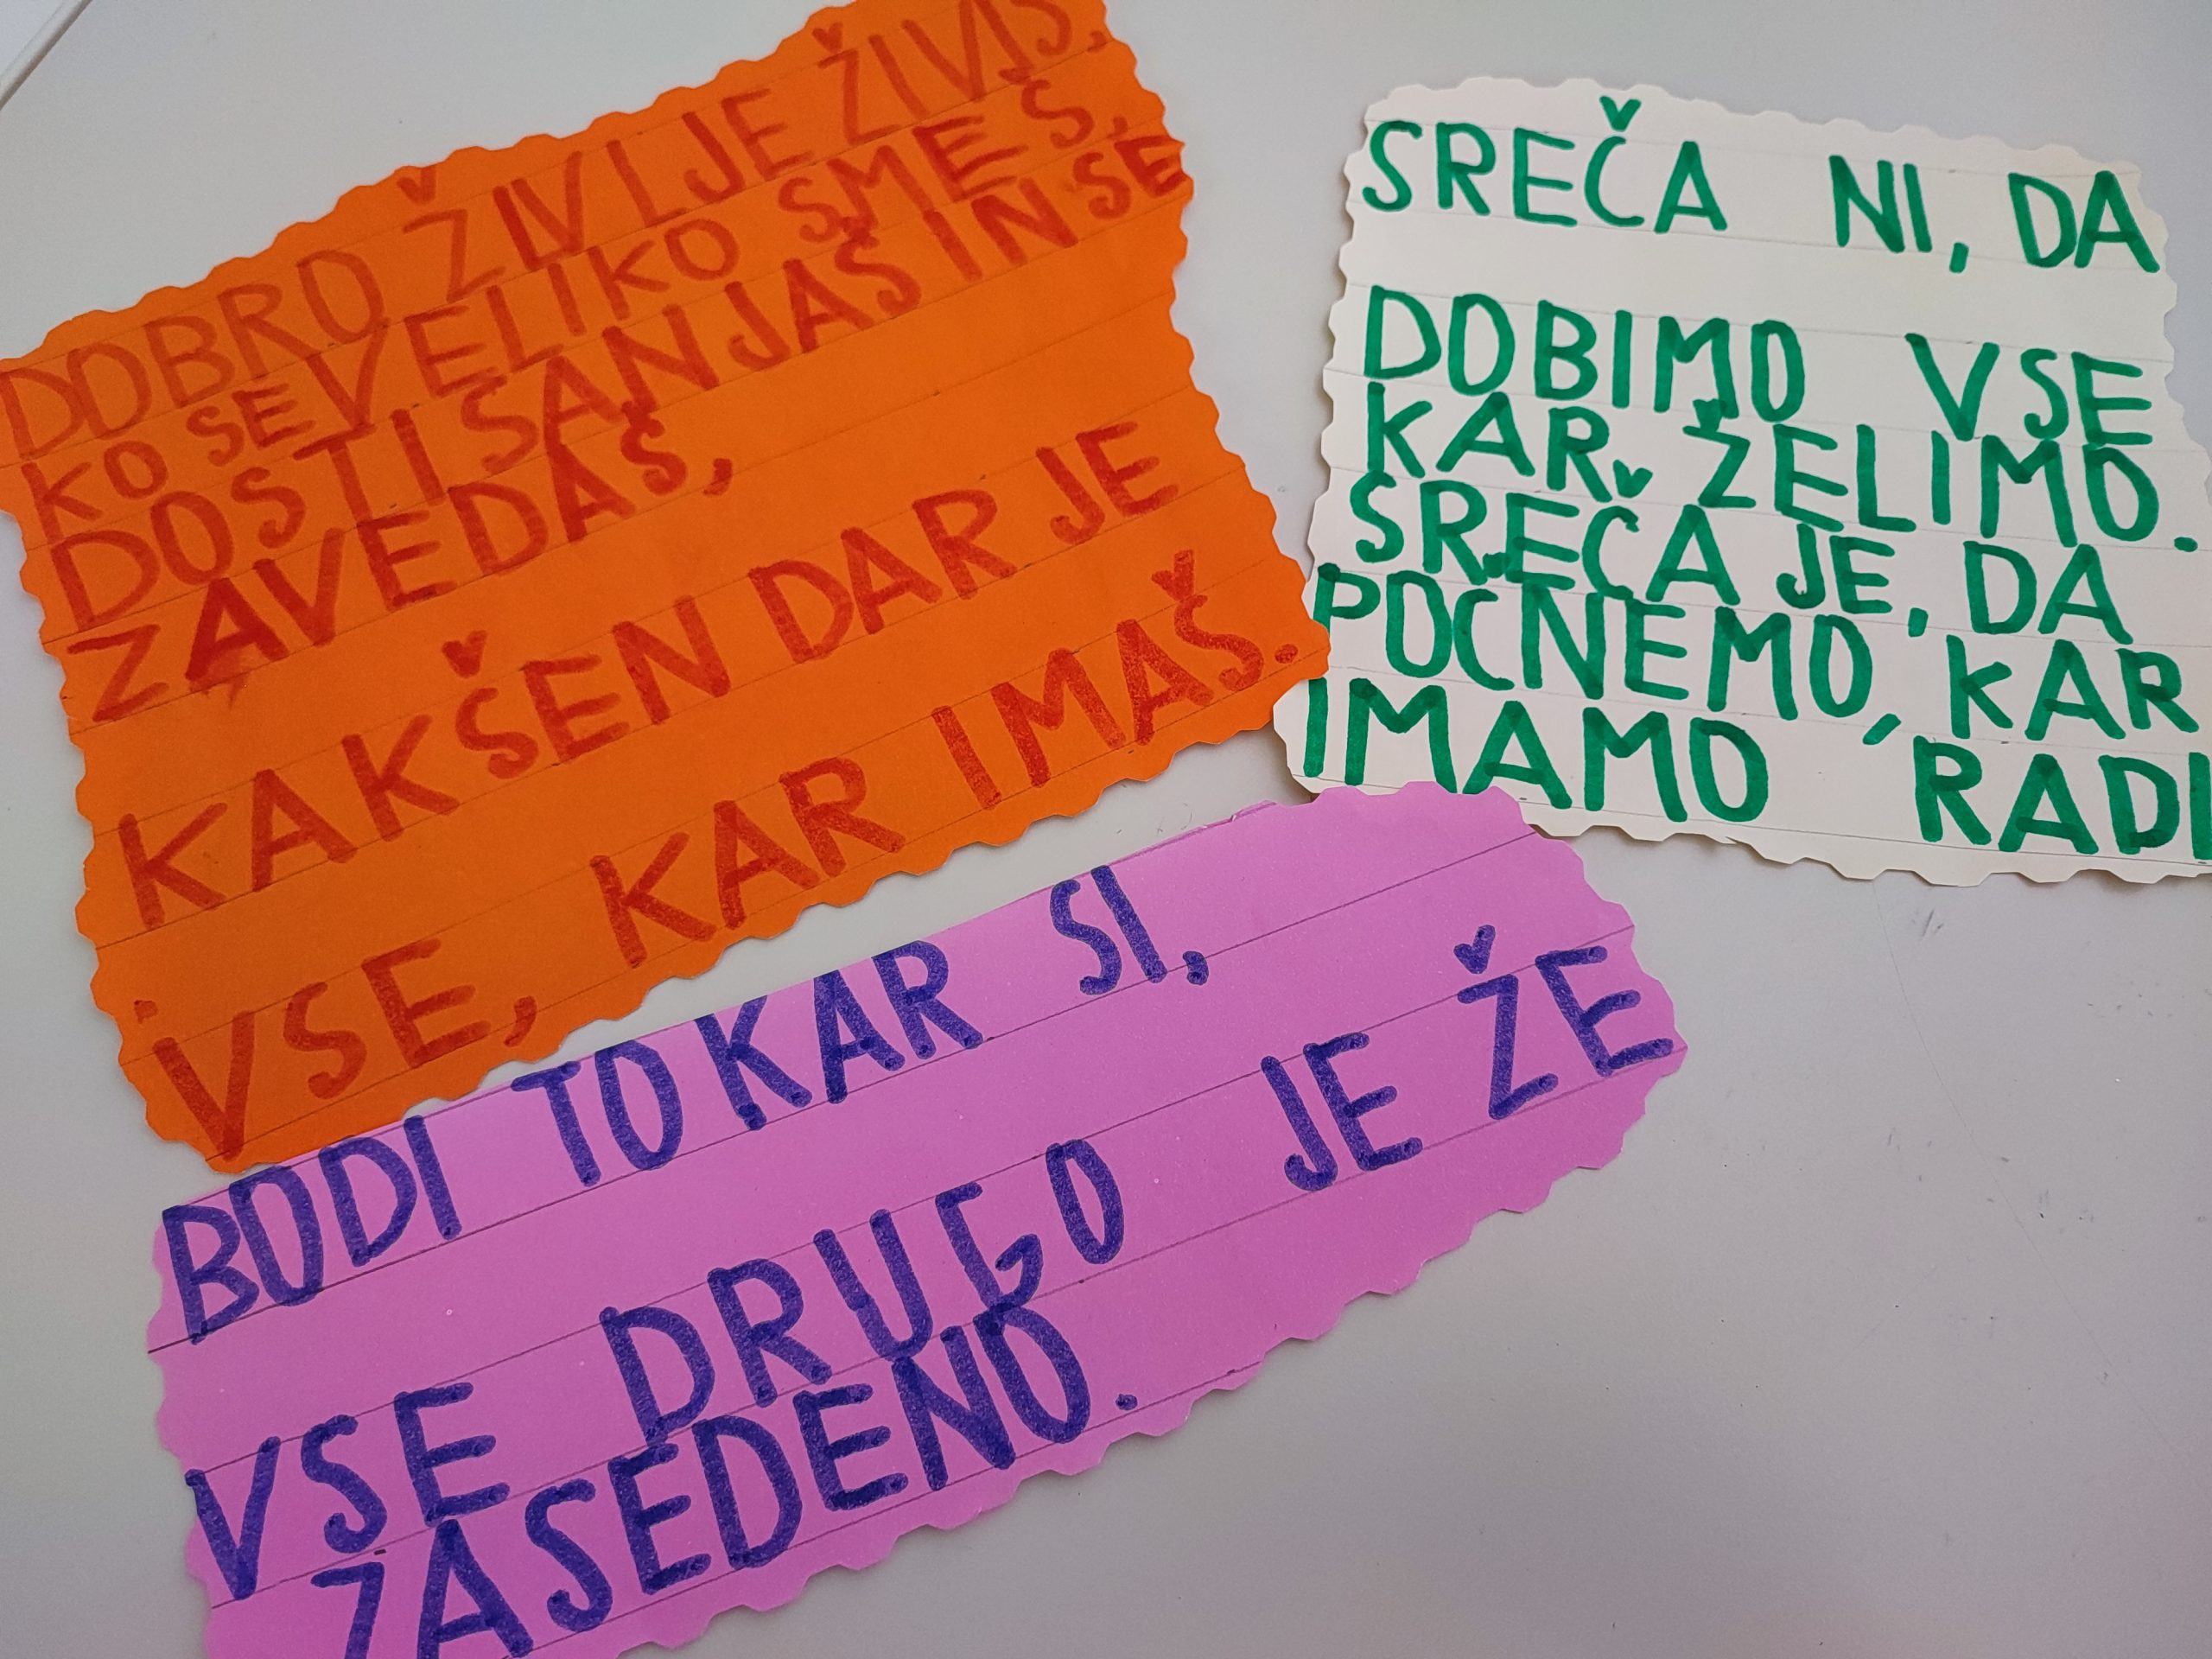 DOBRO ŽIVLJE ŽIVIŠ,
KO SE VELIKO SMEŠ,
DOSTI SANJAŠ IN SE
ZAVEDAŠ,
KAKŠEN DAR JE
VSE, KAR IMAŠ.
SREČA NI, DA
DOBIMO VSE
KAR ŽELIMO.
SREČA JE, DA
POČNEMO, KAR
IMAMO RADI
BODI TO KAR SI,
VSE DRUGO JE ŽE
ZASEDENO.